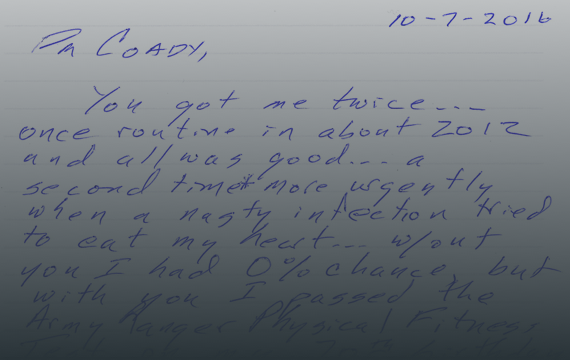 10-7-2016
Dr COADY,
You got me twice...
once routine in about 2012
and all was good... a
second time more urgently
when a nasty infection tried
to eat my heart... w/out
you I had 0% chance, but
with you I passed the
Army Ranger Physical Fitness